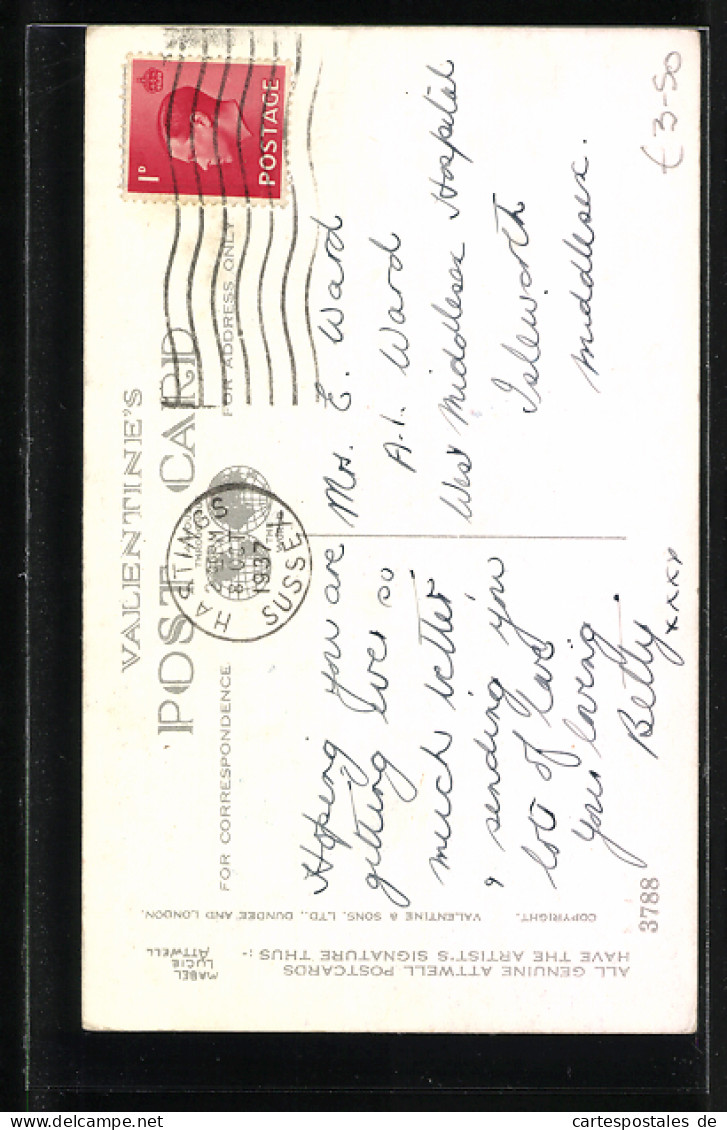 VALENTINE'S
POST CARD
FOR CORRESPONDENCE
FOR ADDRESS ONLY
HASTINGS
8 OCT
1937
SUSSEX
1D
POSTAGE
Hoping you are
getting
much better
& sending you
lots of love
your loving
Betty.
xxxx
Mrs. E. Ward
A.1. Ward
West Middlesex Hospital
Isleworth
Middlesex.
£3-50
ALL GENUINE ATTWELL POSTCARDS
HAVE THE ARTIST'S SIGNATURE THUS:-
MABEL
LUCIE
ATTWELL
COPYRIGHT.
VALENTINE & SONS, LTD., DUNDEE AND LONDON.
3788
cartespostales de